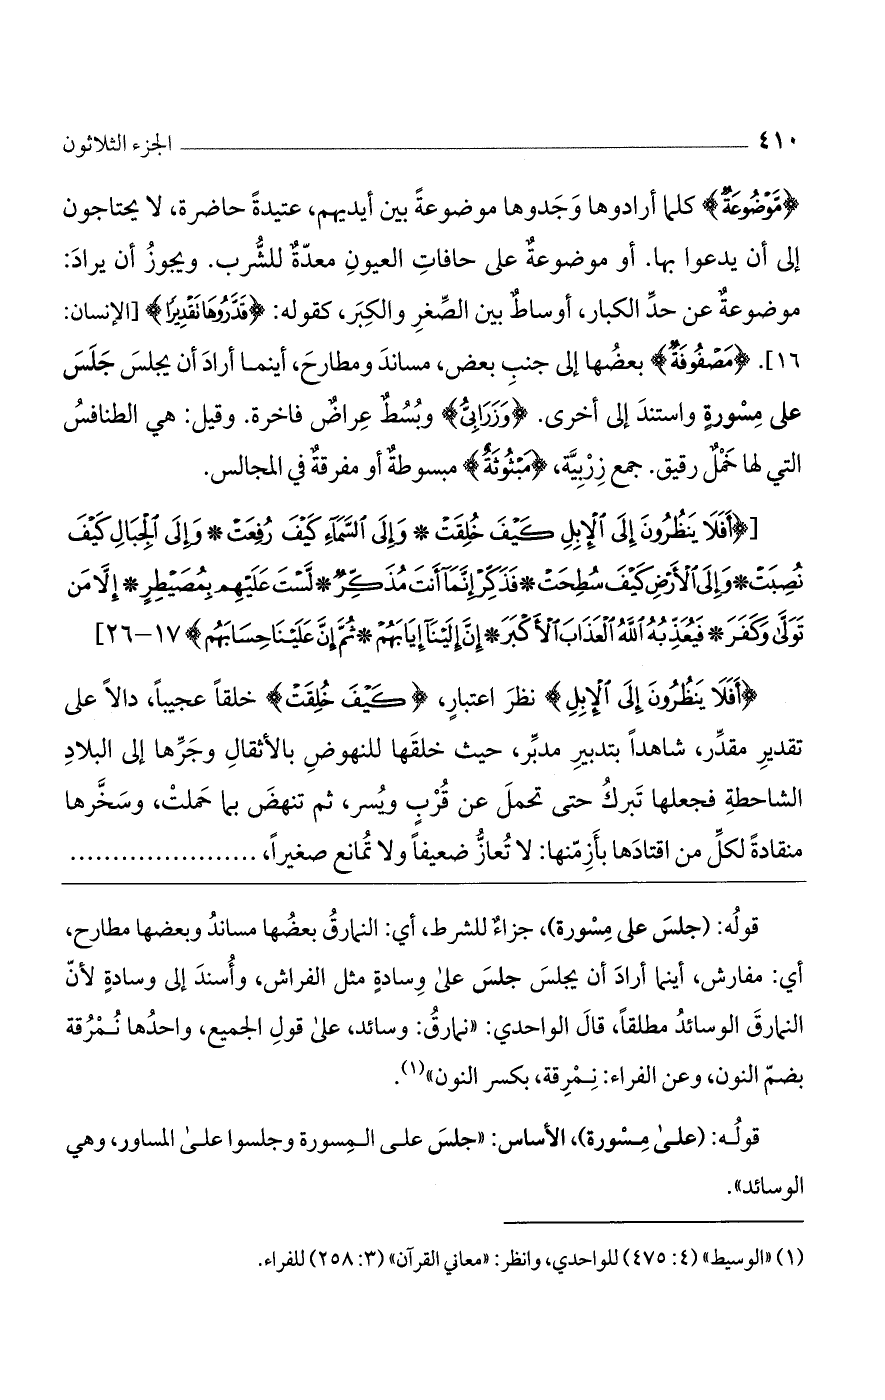 ٤١٠ ــــــــــــــــــــــــــــــــــــــــ الجزء الثلاثون
﴿مَّوْضُوعَةٌ﴾ كلما أرادوها وَجَدوها موضوعةً بين أيديهم، عتيدةً حاضرة، لا يحتاجون
إلى أن يدعوا بها. أو موضوعةٌ على حافاتِ العيونِ معدّةٌ للشُّرب. ويجوزُ أن يرادَ:
موضوعةٌ عن حدِّ الكبار، أوساطٌ بين الصِّغرِ والكِبَر، كقوله: ﴿قَدَّرُوهَا تَقْدِيرًا﴾ [الإنسان:
١٦]. ﴿مَصْفُوفَةٌ﴾ بعضُها إلى جنبِ بعض، مساندَ ومطارحَ، أينما أرادَ أن يجلسَ جَلَسَ
على مِسْورةٍ واستندَ إلى أخرى. ﴿وَزَرَابِيُّ﴾ وبُسُطٌ عِراضٌ فاخرة. وقيل: هي الطنافسُ
التي لها خَمْلٌ رقيق. جمع زِرْبِيَّة، ﴿مَبْثُوثَةٌ﴾ مبسوطةٌ أو مفرقةٌ في المجالس.
[﴿أَفَلَا يَنظُرُونَ إِلَى ٱلْإِبِلِ كَيْفَ خُلِقَتْ * وَإِلَى ٱلسَّمَآءِ كَيْفَ رُفِعَتْ * وَإِلَى ٱلْجِبَالِ كَيْفَ
نُصِبَتْ * وَإِلَى ٱلْأَرْضِ كَيْفَ سُطِحَتْ * فَذَكِّرْ إِنَّمَآ أَنتَ مُذَكِّرٌ * لَّسْتَ عَلَيْهِم بِمُصَيْطِرٍ * إِلَّا مَن
تَوَلَّىٰ وَكَفَرَ * فَيُعَذِّبُهُ ٱللَّهُ ٱلْعَذَابَ ٱلْأَكْبَرَ * إِنَّ إِلَيْنَآ إِيَابَهُمْ * ثُمَّ إِنَّ عَلَيْنَا حِسَابَهُم﴾ ١٧-٢٦]
﴿أَفَلَا يَنظُرُونَ إِلَى ٱلْإِبِلِ﴾ نظرَ اعتبارٍ، ﴿كَيْفَ خُلِقَتْ﴾ خلقاً عجيباً، دالاً على
تقديرِ مقدِّر، شاهداً بتدبيرِ مدبِّر، حيث خلقَها للنهوضِ بالأثقالِ وجَرِّها إلى البلادِ
الشاحطةِ فجعلها تَبركُ حتى تحملَ عن قُرْبٍ ويُسر، ثم تنهضَ بما حَملتْ، وسَخَّرها
منقادةً لكلِّ من اقتادَها بأَزِمّتها: لا تُعازُّ ضعيفاً ولا تُمانع صغيراً، ......................
قولُه: (جلسَ على مِسْورة)، جزاءٌ للشرط، أي: النمارقُ بعضُها مساندُ وبعضها مطارح،
أي: مفارش، أينما أرادَ أن يجلسَ جلسَ علىٰ وِسادةٍ مثل الفراش، وأُسندَ إلى وسادةٍ لأنّ
النمارقَ الوسائدُ مطلقاً، قالَ الواحدي: «نمارقُ: وسائد، علىٰ قولِ الجميع، واحدُها نُـمْرُقة
بضمّ النون، وعن الفراء: نِـمْرِقة، بكسر النون»(١).
قولُـه: (علـىٰ مِـسْورة)، الأساس: «جلسَ علـى الـمِسورة وجلسوا علـىٰ المساور، وهي
الوسائد».
(١) «الوسيط» (٤: ٤٧٥) للواحدي، وانظر: «معاني القرآن» (٣: ٢٥٨) للفراء.